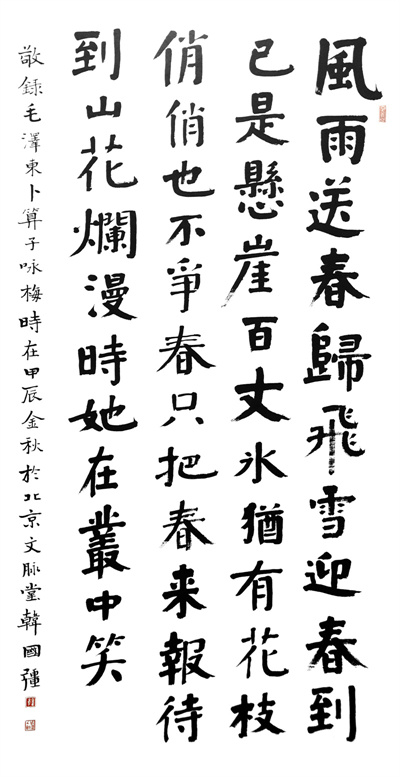 風雨送春歸飛雪迎春到
已是懸崖百丈氷猶有花枝
俏俏也不爭春只把春来報待
到山花爛漫時她在叢中笑
敬錄毛澤東卜算子咏梅時在甲辰金秋於北京文脉堂韓國彊